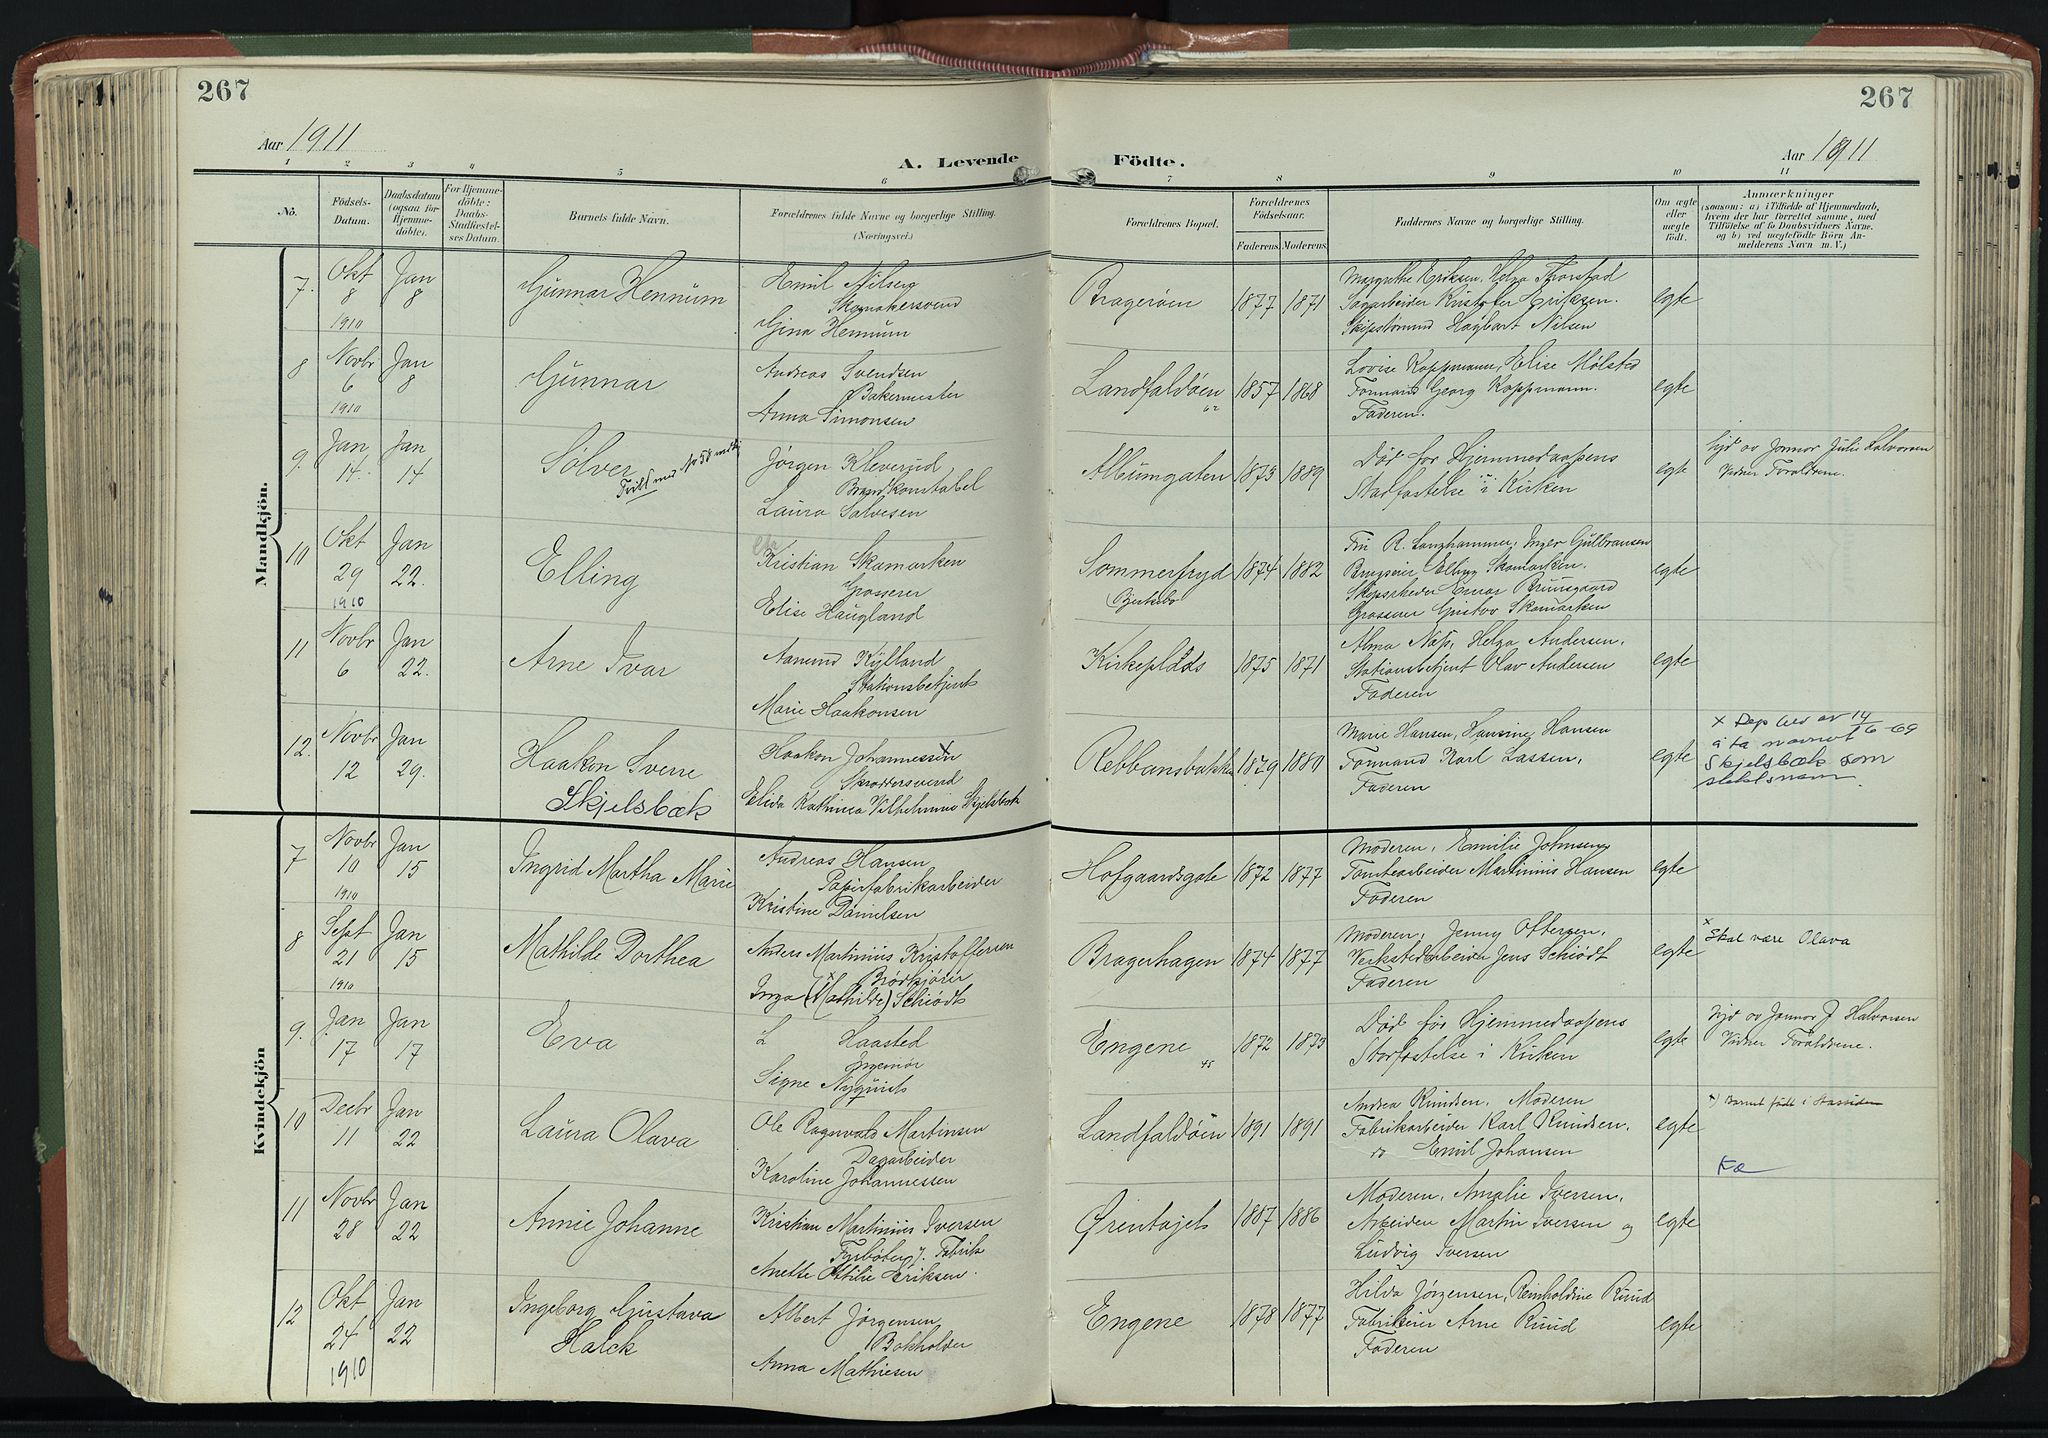 267
267
Aar 1911
A. Levende Födte.
Aar 1911
1 2 3 4 5 6 7 8 9 10 11
No.
Födsels-Datum.
Daabsdatum (ogsaa for Hjemme-döbte).
For Hjemme-döbte: Daabs-Stadfæstel-ses Datum.
Barnets fulde Navn.
Forældrenes fulde Navne og borgerlige Stilling.
(Næringsvei.)
Forældrenes Bopæl.
Forældrenes Födselsaar.
Faderens. Moderens.
Faddernes Navne og borgerlige Stilling.
Om ægte eller uægte födt.
Anmærkninger
(saasom: a) i Tilfælde af Hjemmedaab,
hvem der har forrettet samme, med
Tilföielse af to Daabsvidners Navne.
og b) ved uægtefödte Börn An-
melderens Navn m. V.)
Mandkjön.
7. Okt 8 1910 Jan 8 Gunnar Hennum
Emil Nilsen
Skomakersvend
Gina Hennum
Brageröen 1877 1871
Margrethe Eriksen, Helga Thorstad
Sagarbeider Kristofer Eriksen.
Skipstømmd Hagbart Nilsen
egte
8 Novbr 6 1910 Jan 8 Gunnar
Andreas Svendsen
Bakermester
Anna Simonsen
Landfaldöen 62 1857 1868
Lovise Koppmann, Elise Mølsted
Formand Georg Koppmann.
Faderen.
egte
9. Jan 14. Jan 14 Sølver
Jørgen Kleverud
Brandkonstabel
Laura Salvesen
Albumgaten 1873 1889
Död før Hjemmedaapens
Stadfæstelse i Kirken
egte
Hjd av Jormor Julie Halvorsen
Vidner Forældrene.
10 Okt 29 1910 Jan 22. Elling
Kristian Skamarken
Grosserer
Elise Haugland
Sommerfryd 1874 1882
Fru R. Langhammer, Inger Gulbransen
Elling Skamarken.
Skipsreder Einar Bruusgaard
Grosserer Gustav Skamarken
egte
11 Novbr 6 Jan 22. Arne Ivar
Aamund Kylland
Stationsbetjent
Marie Haakonsen
Kirkeplads 1875 1871
Alma Næss, Helga Andersen.
Stationsbetjent Olav Andersen
Faderen
egte
12. Novbr 12 Jan 29. Haakon Sverre
Skjelsbæk
Haakon Johannessen x
Skræddersvend
Elida Kathinca Vilhelmine Skjelsbæk
Rebbansbakken 1879 1880
Marie Hansen, Hansine Hansen
Formand Karl Lassen,
Faderen
egte
x Dep bev av 14/6-69
å ta navnet
Skjelsbæk som
slektsnavn
Kvindekjön
7 Novbr 10 1910 Jan 15 Ingrid Martha Marie
Andreas Hansen
Papirfabrikarbeider
Kristine Danielsen
Hofgaardsgate 1872 1877
Moderen, Emilie Johnsen,
Tomtearbeider Martinius Hansen
Faderen
egte
8 Sept 21 1910 Jan 15 Mathilde Dorthea
Anders Martinius Kristoffersen
Brødkjører
Inga (x Mathilde) Schiødt
Bragerhagen 1874 1877
Moderen, Jenny Ottersen,
Verkstedarbeider Jens Schiødt
Faderen
egte
x
Skal være Olava
9. Jan 17 Jan 17 Eva
L Haasted
Ingeniør
Signe Nyquist
Engene 45 1872 1873
Död før Hjemmedaapens
Stadfæstelse i Kirken
egte
Hjd av Jormor J Halvorsen
Vidner Forældrene.
10 Decbr 11 Jan 22 Laura Olava
Ole Ragnvald Martinsen
Dagarbeider
Karoline Johannessen
Landfaldöen 1891 1891
Andrea Knudsen, Moderen
Fabrikarbeider Karl Knudsen.
do Emil Johansen
egte
x) Barnet født i
11 Novbr 28 Jan 22 Annie Johanne
Kristian Martinius Iversen
Fyrbøter v. Fabrik
Anette Ottilie Eriksen.
Ørentajet 1887 1886
Moderen, Amalie Iversen,
Arbeiderne Martin Iversen og
Ludvig Iversen
egte
12 Okt 24 1910 Jan 22 Ingeborg Gustava
Halck
Albert Jørgensen
Bokholder
Anna Mathiesen
Engene 1878 1877
Hilda Jørgensen, Reinholdine Ruud
Fabrikeier Arne Ruud
Faderen
egte